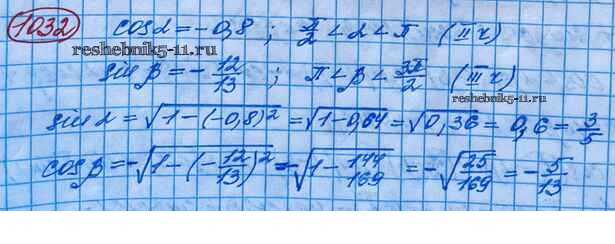 1032 cos α = -0,8 ; π/2 < α < π (II ч)
reshebnik5-11.ru
sin β = - 12/13 ; π < β < 3π/2 (III ч)
reshebnik5-11.ru
sin α = √(1-(-0,8)²) = √(1-0,64) = √(0,36) = 0,6 = 3/5
cos β = -√(1-(-12/13)²) = -√(1-144/169) = -√(25/169) = -5/13